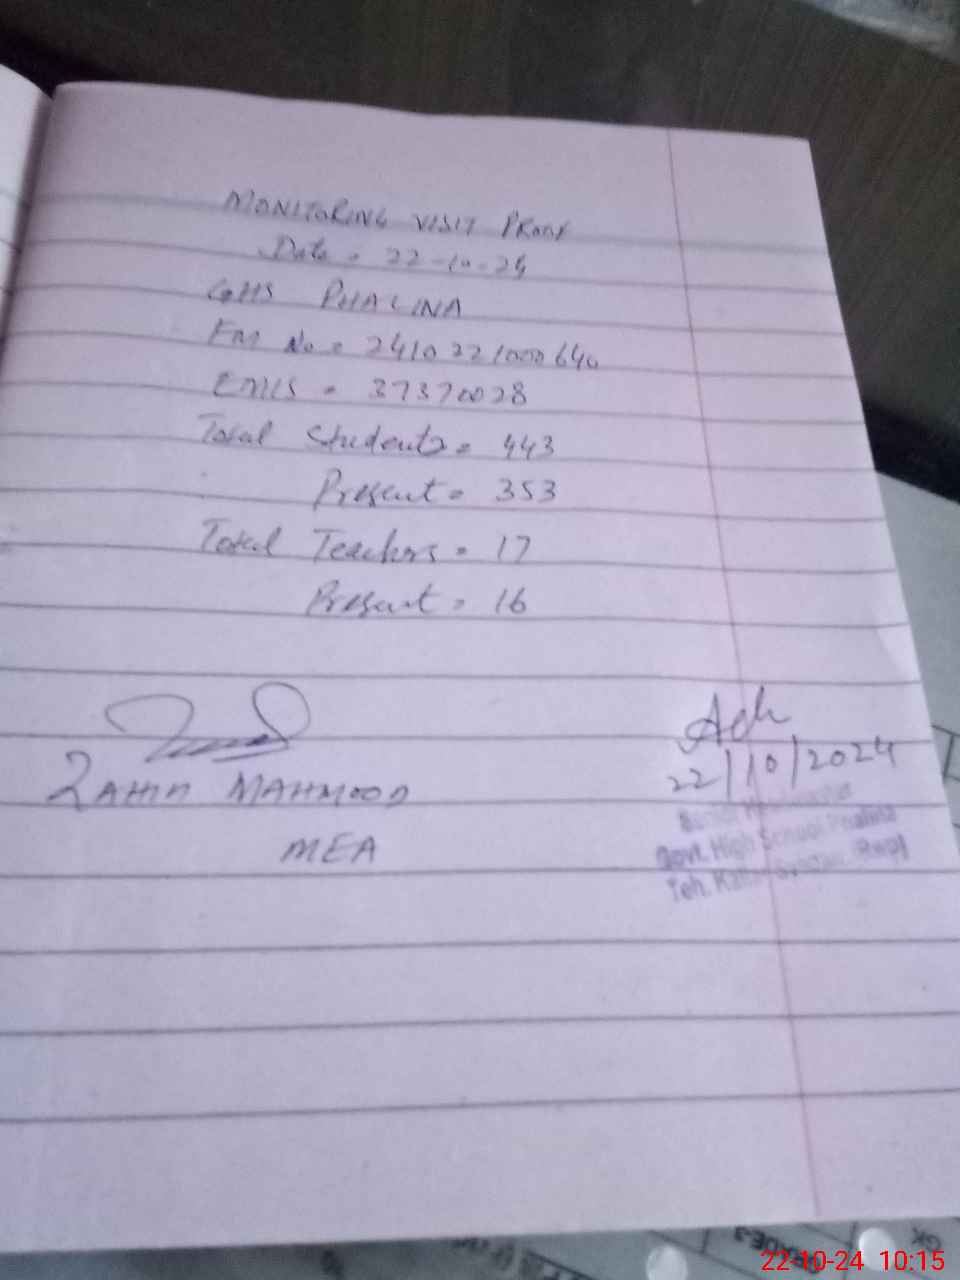 MONITORING VISIT PROOF
Date = 22-10-24
GHS PHALINA
FM No = 2410221000640
EMIS = 37370028
Total Students = 443
Present = 353
Total Teachers = 17
Present = 16
MAHMOOD
MEA
22/10/2024
Senior Headmaster
Govt. High School Phalina
Teh. Kallar Syedan Rwp
22-10-24 10:15